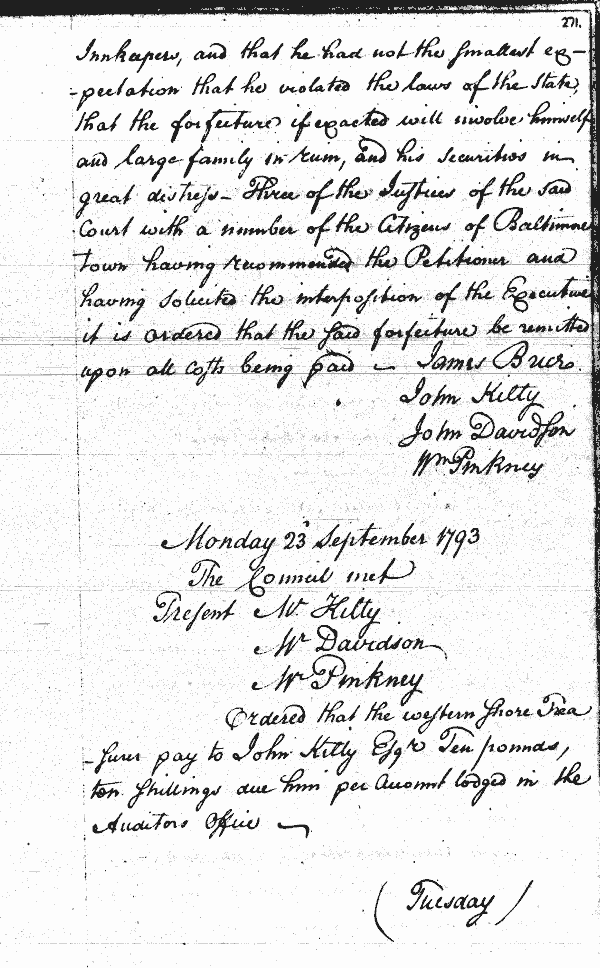 271.
Innkeepers, and that he had not the smallest ex-
-pectation that he violated the laws of the State,
that the forfeiture if exacted will involve himself
and large family in ruin, and his securities in
great distress - Three of the Justices of the said
Court with a number of the Citizens of Baltimore
town having recommended the Petitioner and
having solicited the interposition of the Executive
it is ordered that the said forfeiture be remitted
upon all Costs being paid - James Brice.
John Kilty
John Davidson
Wm Pinkney
Monday 23d September 1793
The Council met
Present Mr. Kilty
Mr Davidson
Mr Pinkney
Ordered that the western Shore Trea
-surer pay to John Kilty Esqr Ten pounds,
ten Shillings due him per Account lodged in the
Auditors Office
(Tuesday)